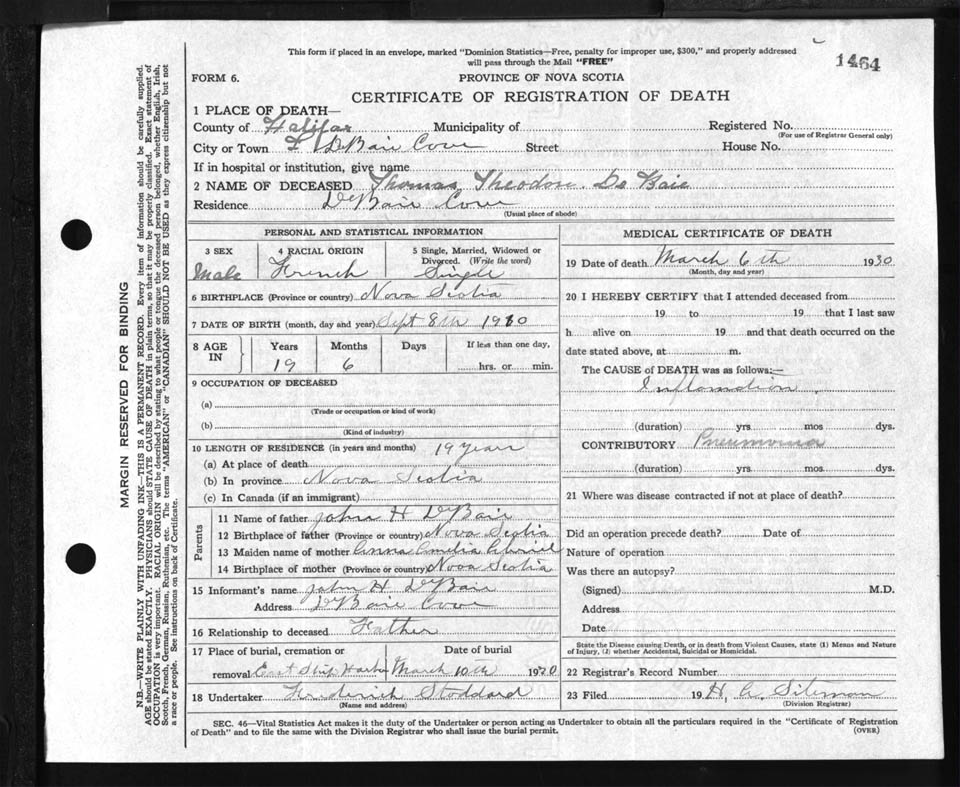 This form if placed in an envelope, marked "Dominion Statistics—Free, penalty for improper use, $300," and properly addressed
will pass through the Mail "FREE"
1464
FORM 6.
PROVINCE OF NOVA SCOTIA
CERTIFICATE OF REGISTRATION OF DEATH
1 PLACE OF DEATH—
County of Halifax Municipality of Registered No.
(For use of Registrar General only)
City or Town DeBaie Cove Street House No.
If in hospital or institution, give name
2 NAME OF DECEASED Thomas Theodore De Baie
Residence DeBaie Cove
(Usual place of abode)
PERSONAL AND STATISTICAL INFORMATION
3 SEX 4 RACIAL ORIGIN 5 Single, Married, Widowed or
Divorced. (Write the word)
Male French Single
6 BIRTHPLACE (Province or country) Nova Scotia
7 DATE OF BIRTH (month, day and year) Sept 8th 1910
8 AGE IN Years Months Days If less than one day,
19 6 hrs. or min.
9 OCCUPATION OF DECEASED
(a)
(Trade or occupation or kind of work)
(b)
(Kind of industry)
10 LENGTH OF RESIDENCE (in years and months) 19 years
(a) At place of death
(b) In province Nova Scotia
(c) In Canada (if an immigrant)
Parents
11 Name of father John H DeBaie
12 Birthplace of father (Province or country) Nova Scotia
13 Maiden name of mother Anna Emilia
14 Birthplace of mother (Province or country) Nova Scotia
15 Informant's name John H DeBaie
Address DeBaie Cove
16 Relationship to deceased Father
17 Place of burial, cremation or Date of burial
removal East Ship Harbor March 10th 1930
18 Undertaker Friderick Stoddard
(Name and address)
MEDICAL CERTIFICATE OF DEATH
19 Date of death March 6th 1930
(Month, day and year)
20 I HEREBY CERTIFY that I attended deceased from
19 to 19 that I last saw
h alive on 19 and that death occurred on the
date stated above, at m.
The CAUSE of DEATH was as follows:—
Inflamation
(duration) yrs. mos. dys.
CONTRIBUTORY Pneumonia
(duration) yrs. mos. dys.
21 Where was disease contracted if not at place of death?
Did an operation precede death? Date of
Nature of operation
Was there an autopsy?
(Signed) M.D.
Address
Date
State the Disease causing Death, or in death from Violent Causes, state (1) Means and Nature
of Injury, (2) whether Accidental, Suicidal or Homicidal.
22 Registrar's Record Number
23 Filed 19 H. A. Siteman
(Division Registrar)
SEC. 46—Vital Statistics Act makes it the duty of the Undertaker or person acting as Undertaker to obtain all the particulars required in the "Certificate of Registration
of Death" and to file the same with the Division Registrar who shall issue the burial permit.
(OVER)
MARGIN RESERVED FOR BINDING
N.B.—WRITE PLAINLY WITH UNFADING INK—THIS IS A PERMANENT RECORD. Every item of information should be carefully supplied.
AGE should be stated EXACTLY. PHYSICIANS should STATE CAUSE OF DEATH in plain terms, so that it may be properly classified. Exact statement of
OCCUPATION is very important. RACIAL ORIGIN will be described by stating to what people or tongue the deceased person belonged, whether English, Irish,
Scotch, French, German, Russian, Ruthenian, etc. The terms "AMERICAN" or "CANADIAN" SHOULD NOT BE USED as they express citizenship but not
a race or people. See instructions on back of Certificate.